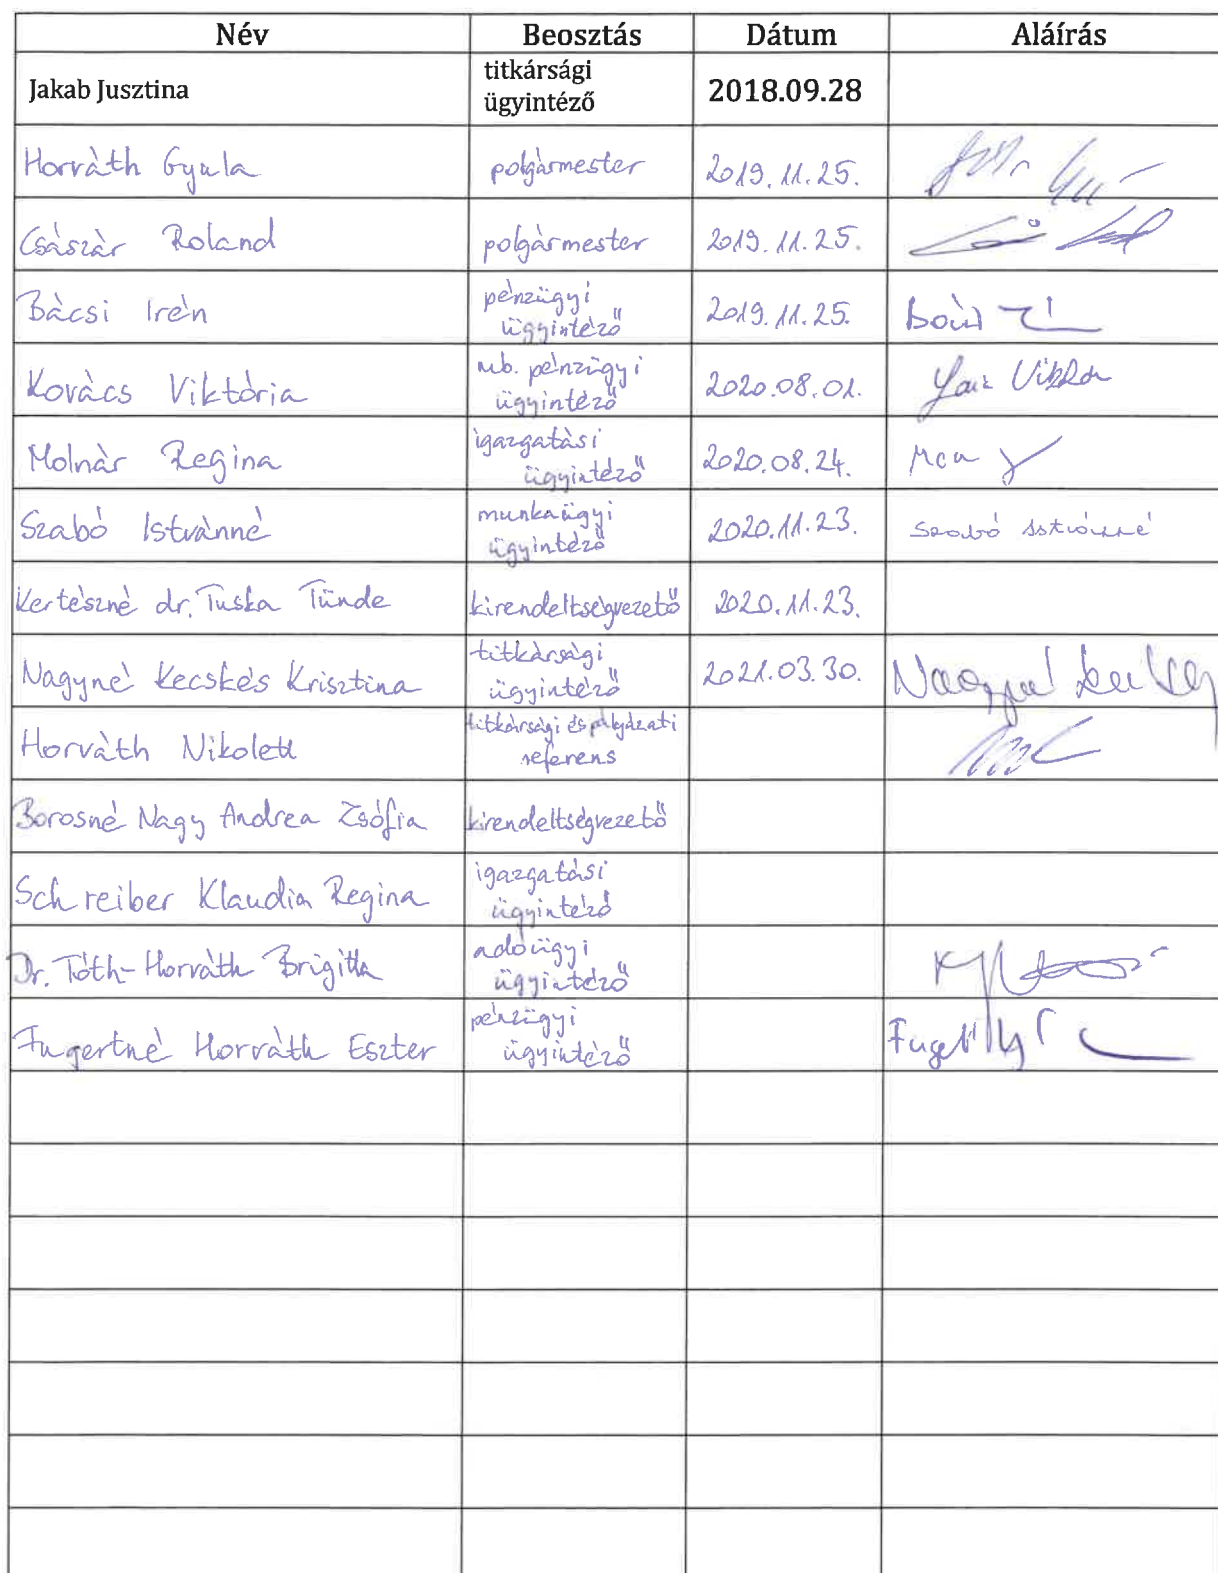 Név Beosztás Dátum Aláírás
Jakab Jusztina titkársági ügyintéző 2018.09.28
Horváth Gyula polgármester 2019.11.25.
Császár Roland polgármester 2019.11.25.
Bácsi Irén pénzügyi ügyintéző 2019.11.25.
Kovács Viktória mb. pénzügyi ügyintéző 2020.08.01.
Molnár Regina igazgatási ügyintéző 2020.08.24.
Szabó Istvánné munkaügyi ügyintéző 2020.11.23. Szabó Istvánné
Kertészné dr. Tuska Tünde kirendeltségvezető 2020.11.23.
Nagyné Kecskés Krisztina titkársági ügyintéző 2021.03.30.
Horváth Nikolett titkársági és pályázati referens
Borosné Nagy Andrea Zsófia kirendeltségvezető
Schreiber Klaudia Regina igazgatási ügyintéző
Dr. Tóth-Horváth Brigitta adóügyi ügyintéző
Fugertné Horváth Eszter pénzügyi ügyintéző